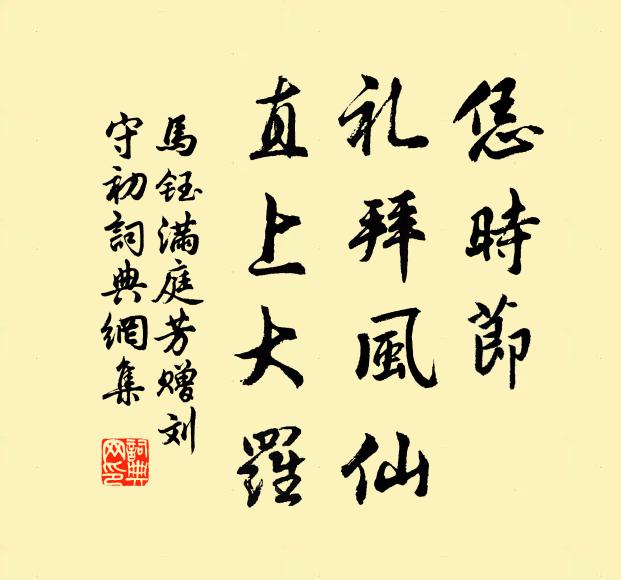 恁時節
礼拜風仙
直上大羅
馬鈺滿庭芳赠刘
守初詞典網集
詞典网印